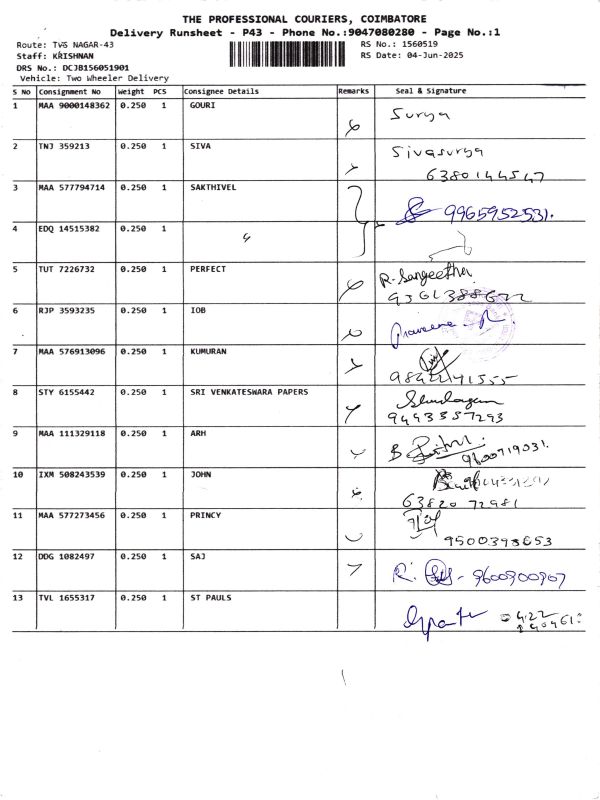 THE PROFESSIONAL COURIERS, COIMBATORE
Delivery Runsheet - P43 - Phone No.:9047080280 - Page No.:1
Route: TVS NAGAR-43 RS No.: 1560519
Staff: KRISHNAN RS Date: 04-Jun-2025
DRS No.: DCJB156051901
Vehicle: Two Wheeler Delivery
S No Consignment No Weight PCS Consignee Details Remarks Seal & Signature
1 MAA 9000148362 0.250 1 GOURI Surya
2 TNJ 359213 0.250 1 SIVA Sivasurya
6380144547
3 MAA 577794714 0.250 1 SAKTHIVEL 9965952531.
4 EDQ 14515382 0.250 1
5 TUT 7226732 0.250 1 PERFECT R. Sangeetha
6 RJP 3593235 0.250 1 IOB
7 MAA 576913096 0.250 1 KUMURAN
8 STY 6155442 0.250 1 SRI VENKATESWARA PAPERS
9443357293
9 MAA 111329118 0.250 1 ARH B
9600719031.
10 IXM 508243539 0.250 1 JOHN
63820 72981
11 MAA 577273456 0.250 1 PRINCY
9500398653
12 DDG 1082497 0.250 1 SAJ R. - 9600900907
13 TVL 1655317 0.250 1 ST PAULS